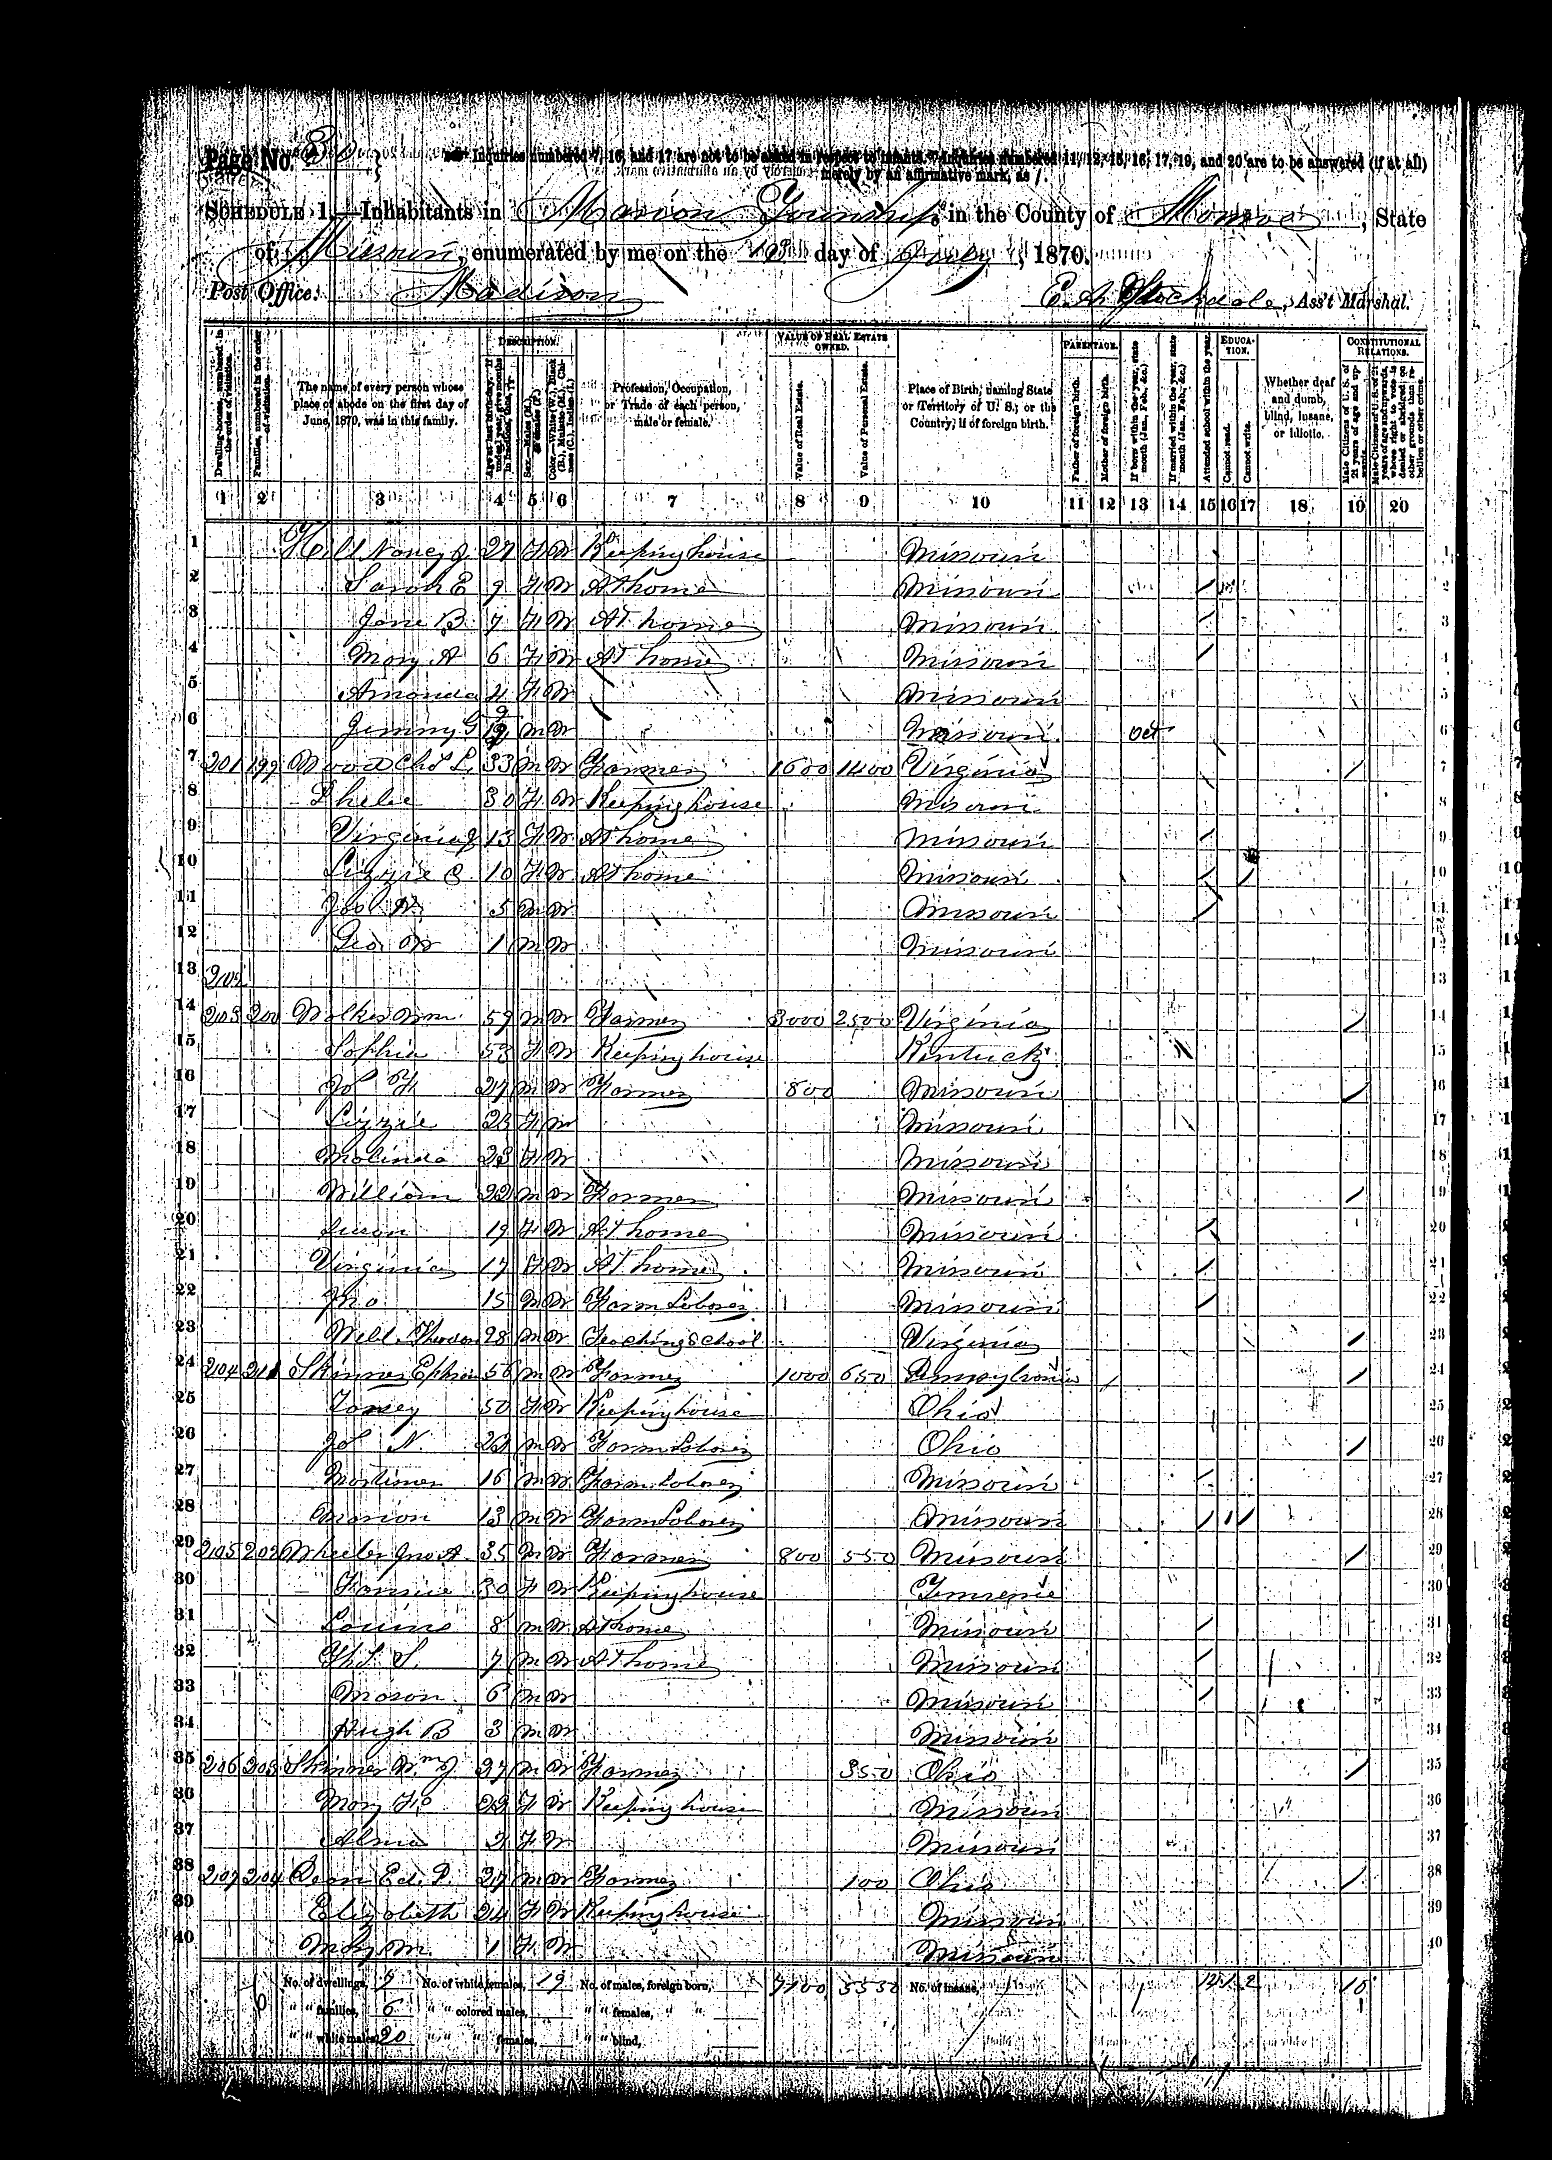 Page No. 30
Inquiries numbered 7, 16, and 17 are not to be asked in respect to infants. Inquiries numbered 11, 12, 15, 16, 17, 19, and 20 are to be answered (if at all)
merely by an affirmative mark, as /.
SCHEDULE 1.—Inhabitants in Marion Township, in the County of Monroe, State
of Missouri, enumerated by me on the 19 day of July, 1870.
Post Office: Madison E. A. Stockdale, Ass't Marshal.
DESCRIPTION. VALUE OF REAL ESTATE OWNED. PARENTAGE. EDUCATION. CONSTITUTIONAL RELATIONS.
Dwelling-houses, numbered in the order of visitation.
Families, numbered in the order of visitation.
The name of every person whose place of abode on the first day of June, 1870, was in this family.
Age at last birth-day. If under 1 year, give months in fractions, thus, 3/12
Sex.—Males (M.), Females (F.)
Color.—White (W.), Black (B.), Mulatto (M.), Chinese (C.), Indian (I.)
Profession, Occupation, or Trade of each person, male or female.
Value of Real Estate.
Value of Personal Estate.
Place of Birth, naming State or Territory of U. S.; or the Country, if of foreign birth.
Father of foreign birth.
Mother of foreign birth.
If born within the year, state month (Jan., Feb., &c.)
If married within the year, state month (Jan., Feb., &c.)
Attended school within the year.
Cannot read.
Cannot write.
Whether deaf and dumb, blind, insane, or idiotic.
Male Citizens of U. S. of 21 years of age and upwards.
Male Citizens of U. S. of 21 years of age and upwards, whose right to vote is denied or abridged on other grounds than rebellion or other crime.
1 2 3 4 5 6 7 8 9 10 11 12 13 14 15 16 17 18 19 20
1 Hill Nancy J 27 F W Keeping house Missouri 1
2 Sarah E 9 F W At home Missouri / 2
3 Jane B 7 F W At home Missouri / 3
4 Mary A 6 F W At home Missouri / 4
5 Amanda 4 F W Missouri 5
6 Jimmy G 9/12 M W Missouri Oct 6
7 201 199 Wood Chs L. 33 M W Farmer 1600 1400 Virginia / 7
8 Phebe 30 F W Keeping house Missouri 8
9 Virginia J 13 F W At home Missouri / 9
10 Lizzie C 10 F W At home Missouri / / 10
11 Jos W. 5 M W Missouri / 11
12 Geo W 1 M W Missouri 12
13 202 13
14 203 200 Walker Wm 59 M W Farmer 3000 2500 Virginia / 14
15 Sophia 53 F W Keeping house Kentucky 15
16 Jos H 27 M W Farmer 800 Missouri / 16
17 Lizzie 25 F W Missouri 17
18 Malinda 23 F W Missouri 18
19 William 22 M W Farmer Missouri / 19
20 Susan 19 F W At home Missouri / 20
21 Virginia 17 F W At home Missouri / 21
22 Jno 15 M W Farm Laborer Missouri / 22
23 Will 28 M W Teaching School Virginia / 23
24 204 201 Skinner Ephriam 56 M W Farmer 1000 650 Pennsylvania / 24
25 50 F W Keeping house Ohio 25
26 Jos N. 22 M W Farm Laborer Ohio / 26
27 Mortimer 16 M W Farm Laborer Missouri / 27
28 Marion 13 M W Farm Laborer Missouri / / / 28
29 205 202 Wheeler Jno A. 35 M W Farmer 800 550 Missouri / 29
30 Fannie 30 F W Keeping house Tennessee 30
31 8 M W At home Missouri / 31
32 Ths S. 7 M W At home Missouri / 32
33 Mason 6 M W Missouri / 33
34 Hugh B 3 M W Missouri 34
35 206 203 Skinner Wm J 27 M W Farmer 350 Ohio / 35
36 Mary F 22 F W Keeping house Missouri 36
37 Alma 2 F W Missouri 37
38 207 204 Ed. P. 27 M W Farmer 100 Ohio / 38
39 Elizabeth 24 F W Keeping house Missouri 39
40 M 1 F W Missouri 40
No. of dwellings, 7 No. of white females, 19 No. of males, foreign born, 7100 5550 No. of insane, 12 1 2 10
" " families, 6 " " colored males, " " females, " "
" " white males, 20 " " " females, " " blind,